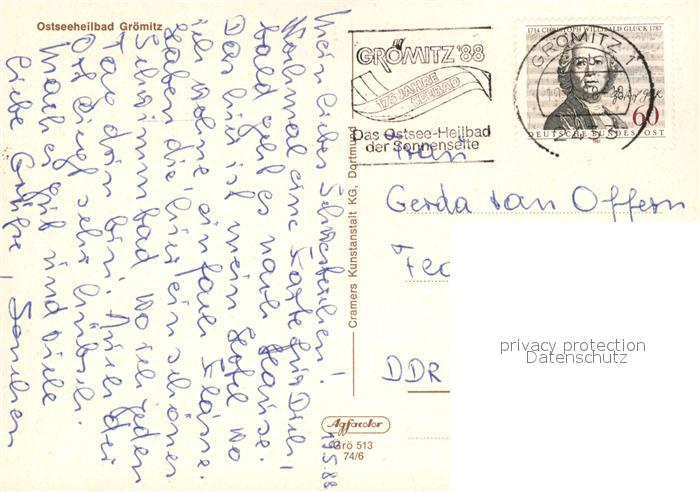 Ostseeheilbad Grömitz
19.5.88
Mein liebes Schwesterchen!
Nochmal eine Karte für Dich,
bald geht es nach Hause.
Das hier ist mein Hotel wo
ich wohne einfach Klasse.
Haben die hier ein schönes
Schwimmbad wo ich jeden
Tag drin bin. Auch der
Ort liegt sehr hübsch.
Mach es gut und viele
liebe Grüße,
Cramers Kunstanstalt KG, Dortmund
GRÖMITZ '88
175 JAHRE
SEEBAD
Das Ostsee-Heilbad
der Sonnenseite
GRÖMITZ 1
1714 CHRISTOPH WILLIBALD GLUCK 1787
60
DEUTSCHE BUNDESPOST
Frau
Gerda van Offern
DDR
privacy protection
Datenschutz
Agfacolor
Grö 513
74/6